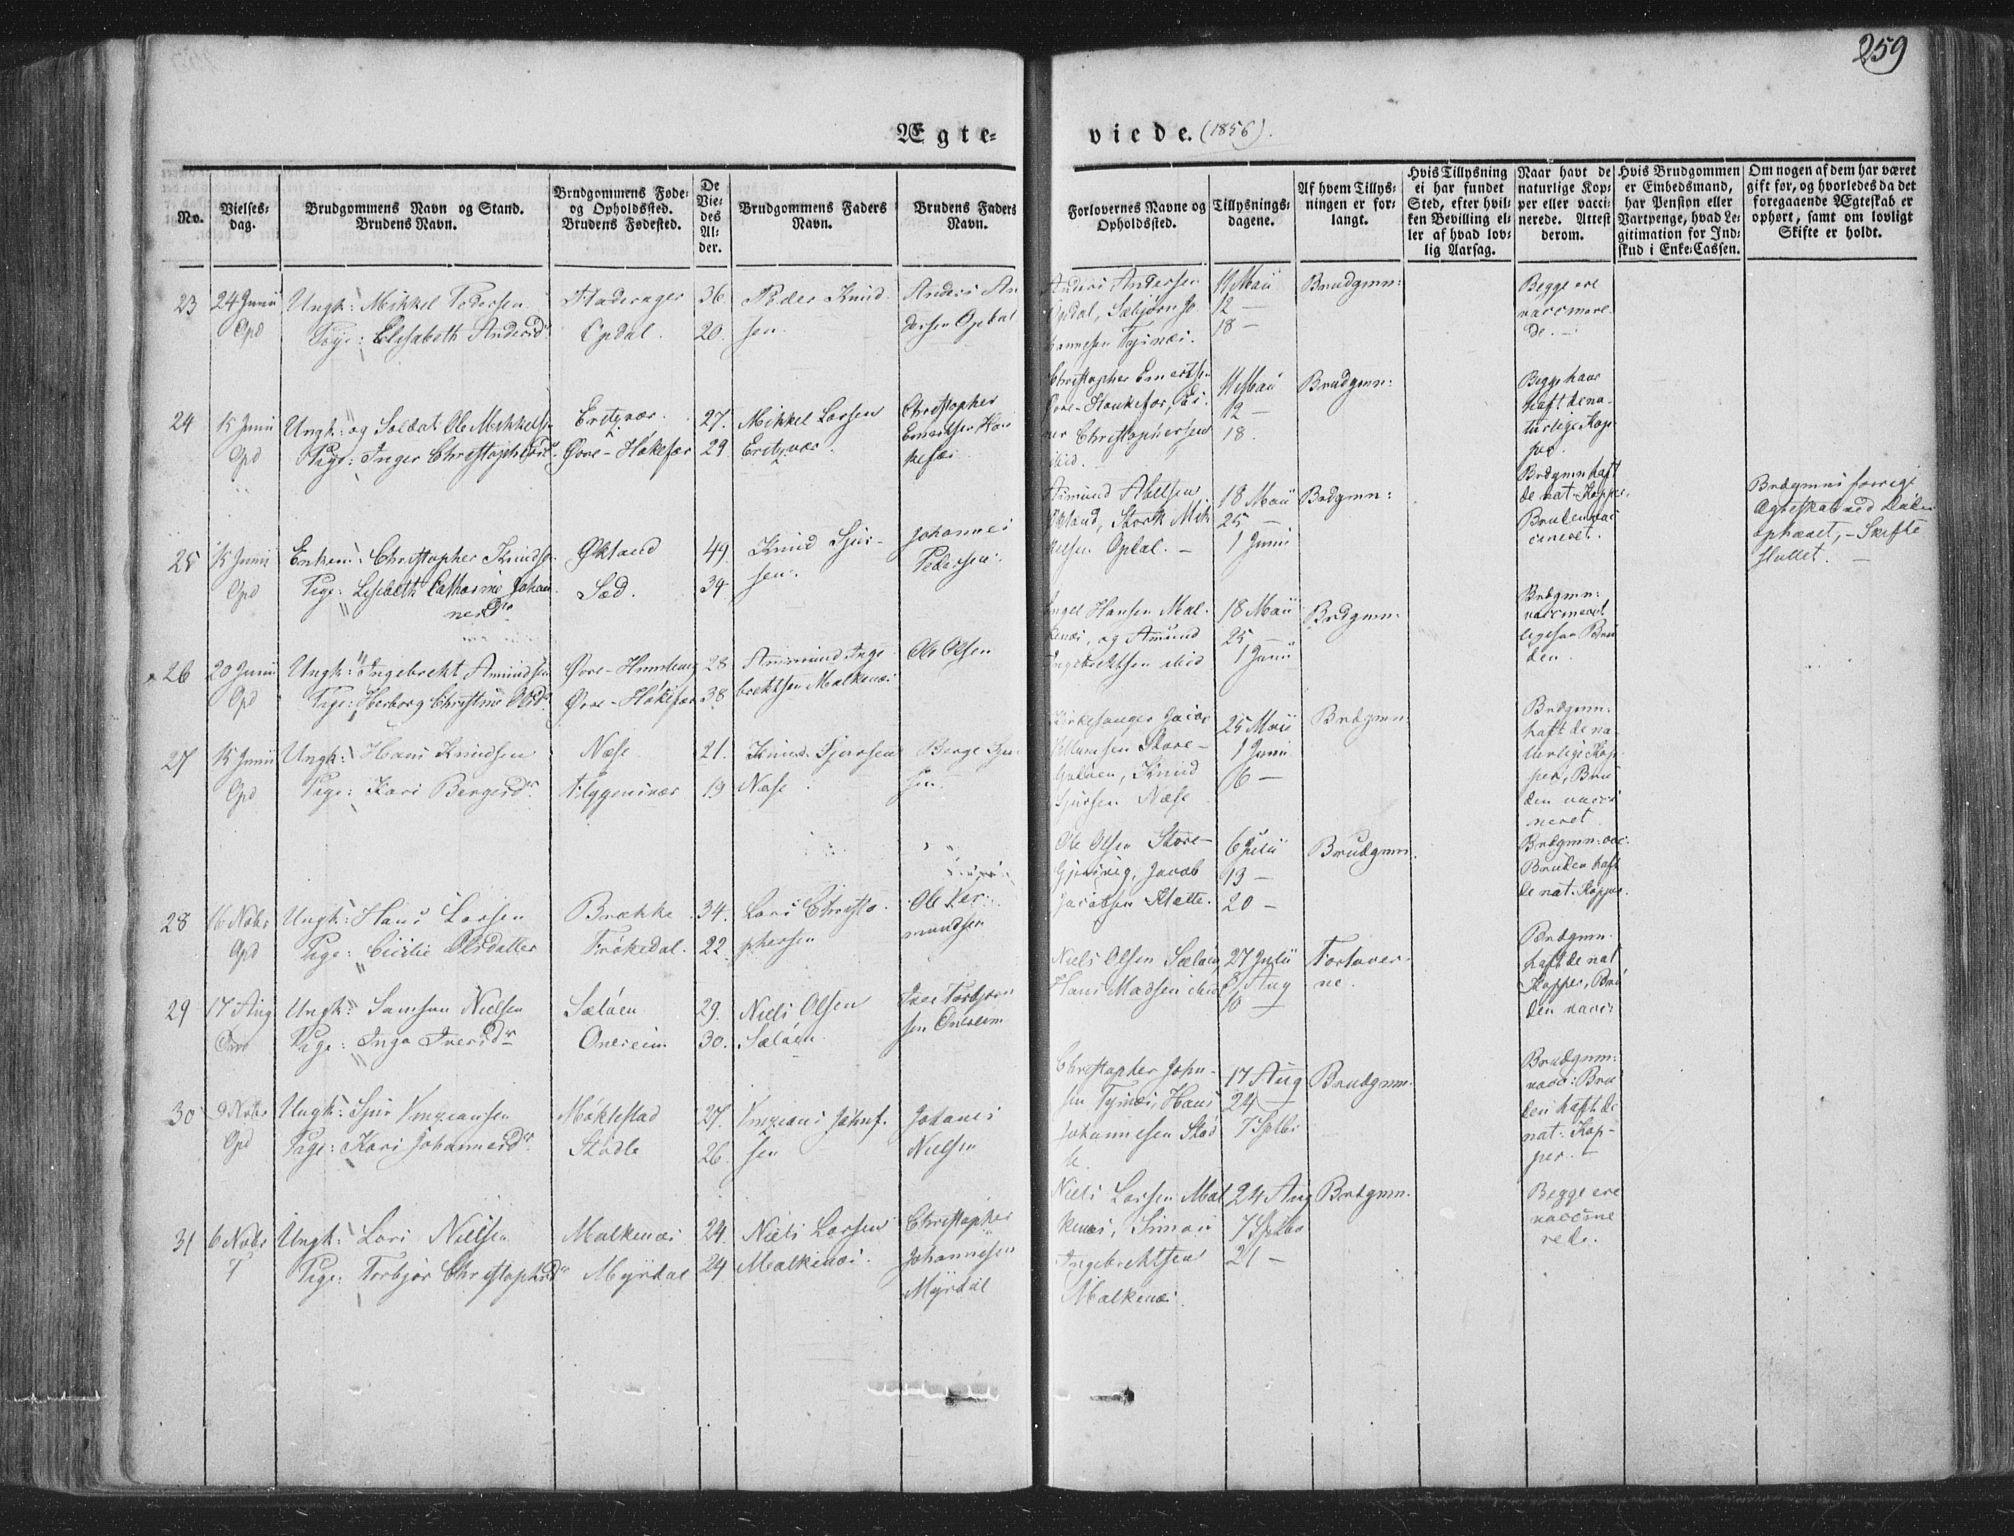 259
Ægte-
viede. (1856).
No.
Vielses-
dag.
Brudgommens Navn og Stand.
Brudens Navn.
Brudgommens Føde-
og Opholdssted.
Brudens Fødested.
De
Vie-
des
Al-
der.
Brudgommens Faders
Navn.
Brudens Faders
Navn.
Forlovernes Navne og
Opholdssted.
Tillysnings-
dagene.
Af hvem Tillys-
ningen er for-
langt.
Hvis Tillysning
ei har fundet
Sted, efter hvil-
ken Bevilling el-
ler af hvad lov-
lig Aarsag.
Naar havt de
naturlige Kop-
per eller vacci-
nerede. Attest
derom.
Hvis Brudgommen
er Embedsmand,
har Pension eller
Vartpenge, hvad Le-
gitimation for Ind-
skud i Enke-Cassen.
Om nogen af dem har været
gift før, og hvorledes da det
foregaaende Ægteskab er
ophørt, samt om lovligt
Skifte er holdt.
23
24 Junii
Opd
Ungk: Mikkel Pedersen
Pige: Elisabeth Andersdr
Fladerager
Opdal
36.
20.
Peder Knud-
sen
Anders An
dersen Opdal
Anders Andersen
Opdal, Sæbjørn Jo
hannesen Tysnæs.
11 Maii
12 —
18 —
Brudgmn:
Begge ere
vaccinere-
de.
24
15 Junii
Opd
Ungk: og Soldat Ole Mikkelsen
Pige: Inger Christophersdr
Eretzvær
Øvre-Høkefær
27.
29
Mikkel Larsen
Eretzvær
Christopher
Emertsen Hau
kefær
Christopher Emertsen
Øvre-Haukefær,
Christophersen
ibid.
11 Maii
12 —
18.
Brudgmn:
Begge have
haft de na-
turlige Kop-
per.
25
15 Junii
Opd
Enkem: Christopher Knudsen
Pige: Lisebeth Catharine Johan
nesdr
Økland
Sæd.
49.
34
Knud Sjur-
sen.
Johannes
Pedersen.
Asmund Abelsen
Økland, Stork Mik
kelsen Opdal. —
18 Maii
25 —
1 Junii
Brdgmn:
Brdgmn haft
de nat. Kopper,
Bruden vac
cineret.
Brdgmns forrige
Ægteskab ved Døden
ophævet, — Skifte
holdet. —
26
20 Junii
Opd
Ungk: Ingebrekt Amundsen
Pige: Herborg Christine Olsdr
Øvre-Humberg
Øvre-Høkefær
28
38
Ammund Inge
brektsen Malkenæs
Ole Olsen
Engel Hansen Mal-
kenæs, og Amund
Ingebrektsen ibid
18 Maii
25 —
1 Junii
Brdgmn:
Brdgmn:
vaccineret
ligesaa Bru
den.
27
15 Junii
Opd
Ungk: Hans Knudsen
Pige: Kari Bergesdr
Næse
Flygensvær
21.
19
Knud Sjursen
Næse
Berge Sjur
sen.
Kirkesanger Jacob
Store-
Godøen, Knud
Sjursen Næse
25 Maii
1 Junii
6 —
Brdgmn.
Brdgmn:
haft de na
turlige Kop-
per, Bru
den vacci
neret.
28
16 Nobr
Opd
Ungk: Hans Larsen
Pige: Cicilie Olsdatter
Brække
Frøkedal.
34.
22
Lars Christo-
phersen
Ole Ver-
mundsen
Ole Olsen Store-
Gjersvig, Jacob
Jacobsen Slette.
6 Julii
13 —
20 —
Brudgmn.
Brdgmn: vac.
Bruden haft
de nat. Kopper.
29
17 Aug
Onre
Ungk: Samson Nielsen
Pige: Inga Iversdr
Sæløen
Onereim
29.
30.
Niels Olsen
Sæløen
Iver Torbjørn
sen Onereim
Niels Olsen Sæløen,
Hans Madsen ibid
27 Julii
3 Aug
10
Forlover-
ne.
Brdgmn.
haft de nat
Kopper, Bru
den vacc:
30
9 Nobr
Opd
Ungk: Sjur Vinzeansen
Pige: Kari Johannesdr
Møklestad
Stødle
27.
26.
Vinzeans Johnf.
sen
Johanes
Nielsen
Christopher John-
sen Tysnæs, Hans
Johannesen Stød
le.
17 Aug
24 —
7 Sptbr
Brudgmn.
Brudgmn:
vacc: Bru
den haft de
nat: Kop-
per. —
31
6 Nobr
T
Ungk: Lars Nielsen
Pige: Torbjør Christophersdr
Malkenæs
Myrdal
24.
24
Niels Larsen
Malkenæs.
Christopher
Johannesen
Myrdal
Niels Larsen Mal
kenæs, Simon
Ingebrektsen
Malkenæs.
24 Aug
7 Sptbr
21 —
Brdgmn.
Begge ere
vaccine
rede.